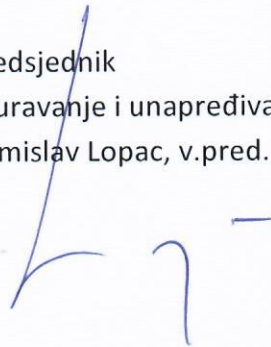 edsjednik
uravanje i unapređiva
mislav Lopac, v.pred.